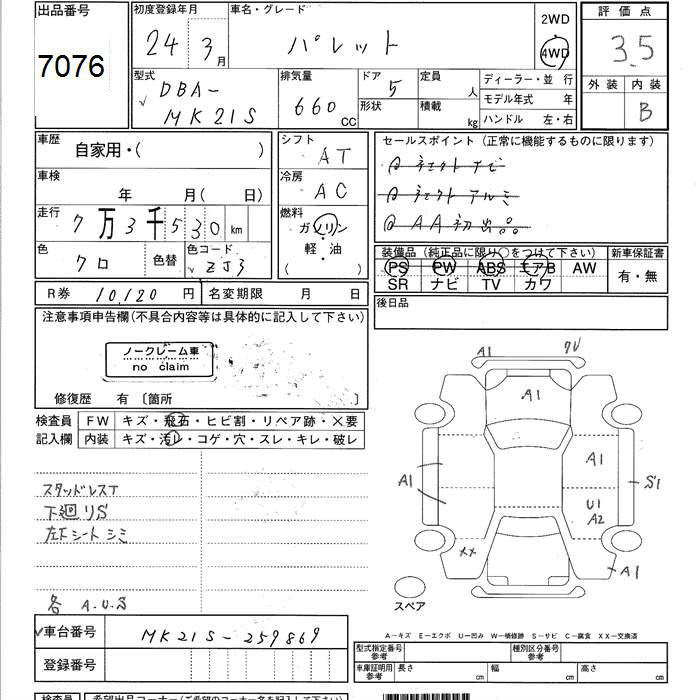 出品番号
7076
初度登録年月
24 3月
車名・グレード
パレット
2WD
4WD
評価点
3.5
外装 内装
B
型式
DBA-
MK21S
排気量
660
CC
ドア
5
形状
定員
人
積載
kg
ディーラー・並行
モデル年式 年
ハンドル 左・右
車歴
自家用・( )
車検
年 月( 日)
走行
7万3千530km
色
クロ
色替
色コード
ZJ3
シフト
AT
冷房
AC
燃料
ガソリン
軽・油
( )
セールスポイント (正常に機能するものに限ります)
AA初出
装備品 (純正品に限り○をつけて下さい)
PS PW ABS エアB AW
SR ナビ TV カワ
新車保証書
有・無
R券 10,120 円
名変期限 月 日
後日品
注意事項申告欄(不具合内容等は具体的に記入して下さい)
ノークレーム車
no claim
修復歴 有 〔箇所 〕
検査員
記入欄
FW キズ・飛石・ヒビ割・リペア跡・×要
内装 キズ・汚レ・コゲ・穴・スレ・キレ・破レ
スタッドレスT
下廻りS
左下シートシミ
各 A.U.S
A1
A1
A1
A1
U1
A2
S1
XX
A1
スペア
A-キズ E-エクボ U-凹み W-補修跡 S-サビ C-腐食 XX-交換済
車台番号
MK21S-259869
登録番号
型式指定番号
参考
種別区分番号
参考
車庫証明用
参考
長さ cm
幅 cm
高さ cm
検査員
希望出品コーナー(ご希望のコーナー名を記入して下さい)